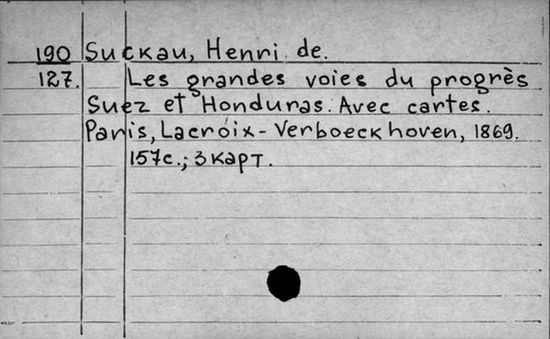 190 Suckau, Henri de.
127. Les grandes voies du progrès
Suez et Honduras. Avec cartes.
Paris, Lacroix-Verboeckhoven, 1869.
157с.; 3 карт.